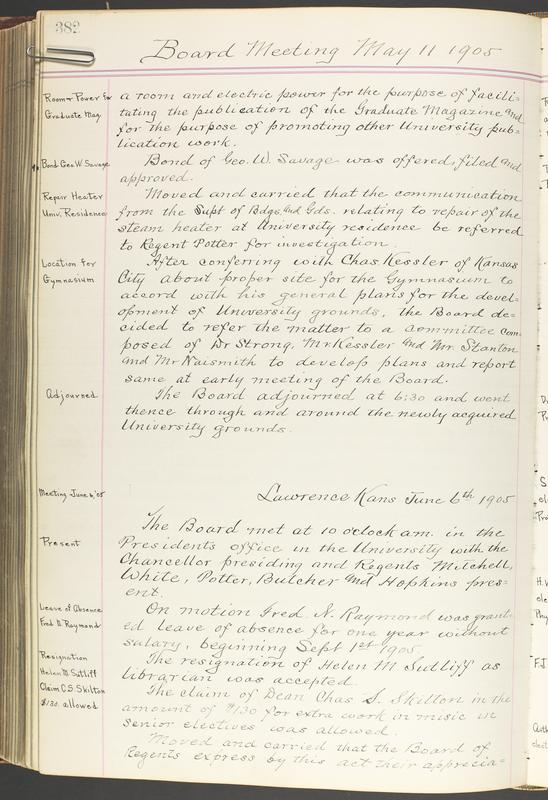 382
Board Meeting May 11 1905
Room & Power for
Graduate Mag.
a room and electric power for the purpose of facili=
tating the publication of the Graduate Magazine and
for the purpose of promoting other University pub=
lication work.
Bond Geo. W. Savage
Bond of Geo. W. Savage was offered, filed and
approved.
Repair Heater
Univ. Residence
Moved and carried that the communication
from the Supt of Bdgs. and Gds. relating to repair of the
steam heater at University residence be referred
to Regent Potter for investigation.
Location for
Gymnasium
After conferring with Chas Kessler of Kansas
City about proper site for the Gymnasium to
accord with his general plans for the devel=
opment of University grounds, the Board de=
cided to refer the matter to a committee com=
posed of Dr Strong, Mr Kessler and Mr. Stanton
and Mr Naismith to develop plans and report
same at early meeting of the Board.
Adjourned
The Board adjourned at 6:30 and went
thence through and around the newly acquired
University grounds.
Meeting June 6, '05
Lawrence Kans June 6th 1905
Present
The Board met at 10 oclock am. in the
Presidents office in the University with the
Chancellor presiding and Regents Mitchell,
White, Potter, Butcher and Hopkins pres=
ent.
Leave of Absence
Fred N. Raymond
On motion Fred. N. Raymond was grant=
ed leave of absence for one year without
salary, beginning Sept 1st 1905.
Resignation
Helen M. Sutliff
The resignation of Helen M Sutliff as
librarian was accepted.
Claim C. S. Skilton
$130. allowed
The claim of Dean Chas S. Skilton in the
amount of $130 for extra work in music in
senior electives was allowed.
Moved and carried that the Board of
Regents express by this act their apprecia=